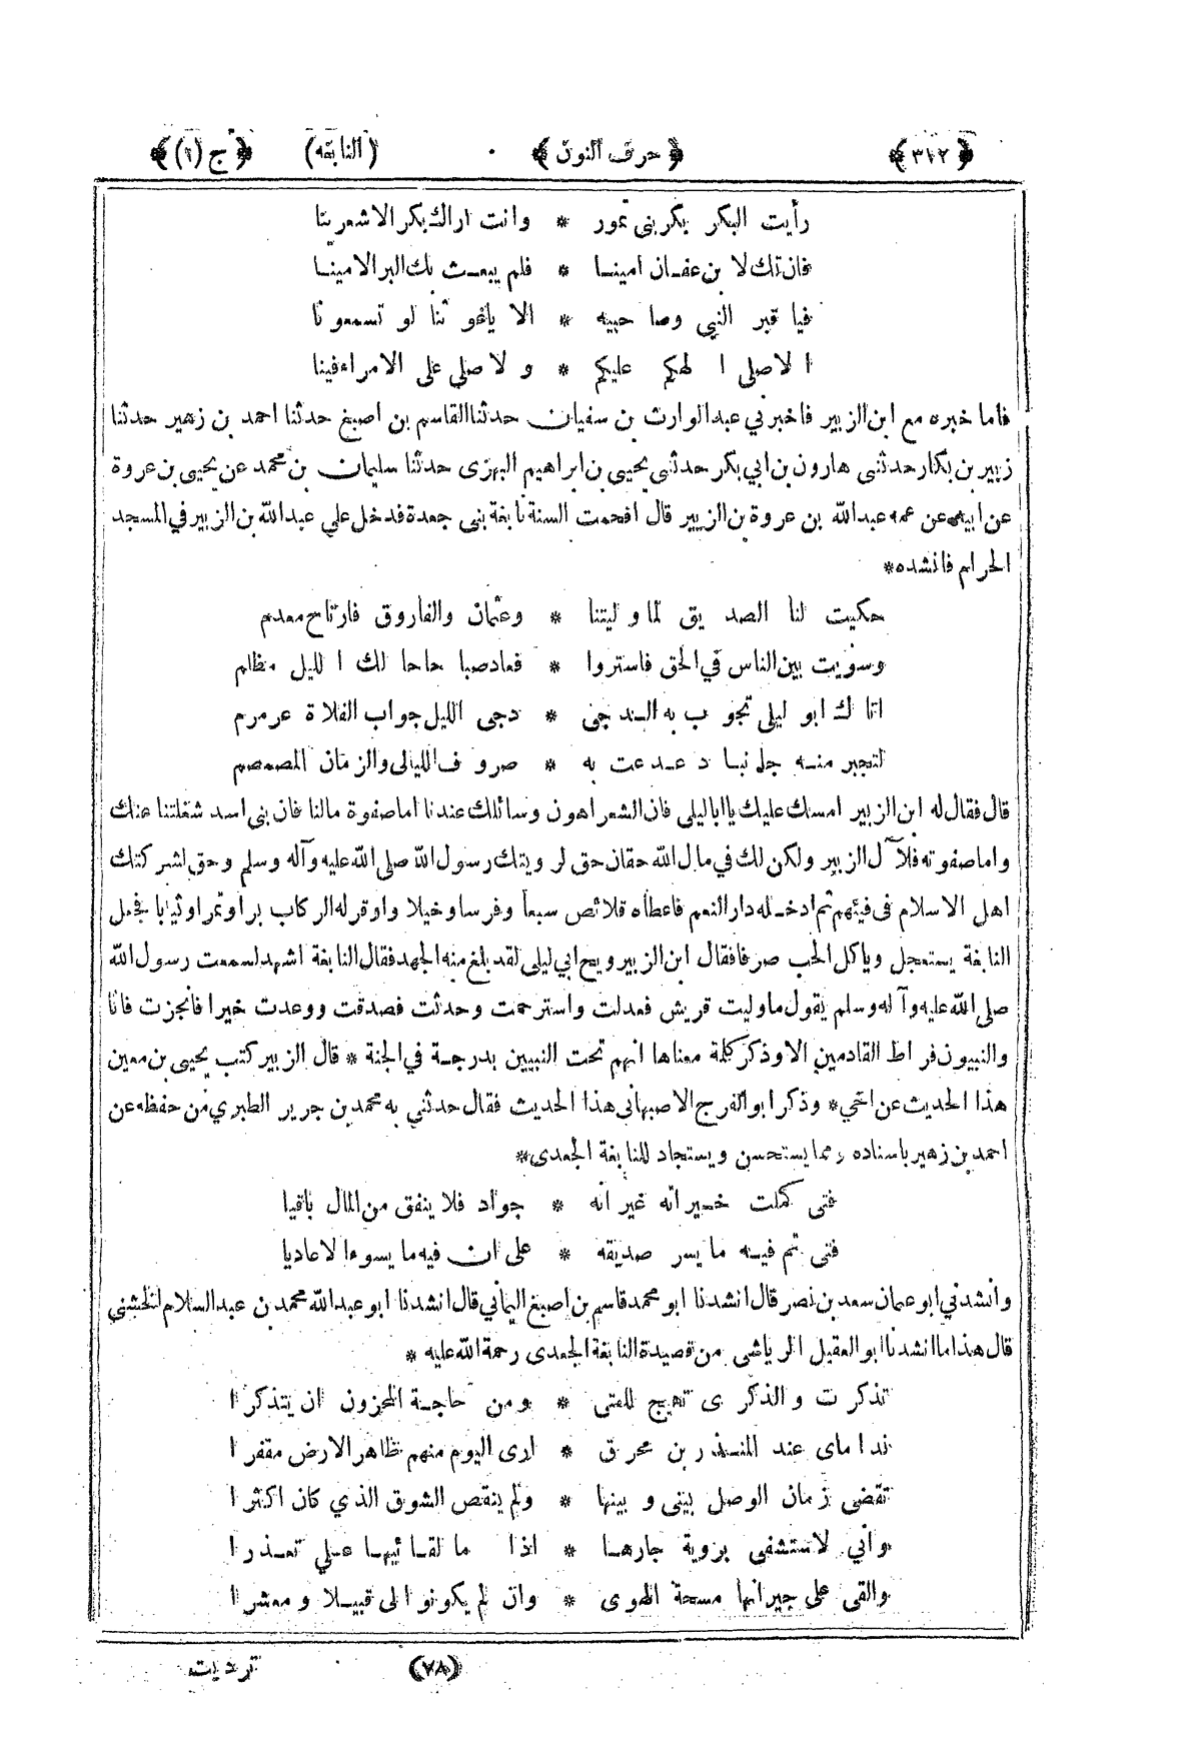 ﴿٣١٢﴾ ﴿حرف النون﴾ (النابغه) ﴿ج (١)﴾
رأيت البكر بكر بنى ثمور * وانت اراك بكر الاشعرينا
فان تك لا بن عفان امينا * فلم يبعث بك البر الامينا
فيا قبر النبي وصا حبيه * الا ياغو ثنا لو تسمعونا
الا صلى ا لهكم عليكم * و لا صلى على الامراء فينا
فاما خبره مع ابن الزبير فاخبرني عبد الوارث بن سفيان حدثنا القاسم بن اصبغ حدثنا احمد بن زهير حدثنا
زبير بن بكار حدثنى هارون بن ابي بكر حدثنى يحيى بن ابراهيم البهزى حدثنا سليمان بن محمد عن يحيى بن عروة
عن ابيه عن عمه عبد الله بن عروة بن الزبير قال افحمت السنة نابغة بنى جعدة فدخل علي عبد الله بن الزبير في المسجد
الحرام فانشده *
حكيت لنا الصد يق لما وليتنا * وعثمان والفاروق فارتاح معدم
وسويت بين الناس في الحق فاستروا * فعاد صبا حا حا لك ا لليل مظلم
اتا ك ابو ليلى تجو ب به الدجى * دجى الليل جواب الفلاة عرمرم
لتجبر منه جا نبا د عدعت به * صرو ف الليالى والزمان المصمصم
قال فقال له ابن الزبير امسك عليك يا ابا ليلى فان الشعر اهون وسائلك عندنا اما صفوة مالنا فان بنى اسد شغلتنا عنك
واما صفوته فلآل الزبير ولكن لك في مال الله حقان حق لرويتك رسول الله صلى الله عليه وآله وسلم وحق لشركتك
اهل الاسلام فى فيئهم ثم ادخله دار النعم فاعطاه قلائص سبعا وفرسا وخيلا واوقر له الركاب برا وتمرا وثيابا فجعل
النابغة يستعجل وياكل الحب صرفا فقال ابن الزبير ويح ابي ليلى لقد بلغ منه الجهد فقال النابغة اشهد لسمعت رسول الله
صلى الله عليه وآله وسلم يقول ما وليت قريش فعدلت واسترحمت وحدثت فصدقت ووعدت خيرا فانجزت فانا
والنبيون فراط القادمين الا وذكر كلمة معناها انهم تحت النبيين بدرجة في الجنة * قال الزبير كتب يحيى بن معين
هذا الحديث عن اخي * وذكر ابو الفرج الاصبهانى هذا الحديث فقال حدثني به محمد بن جرير الطبري من حفظه عن
احمد بن زهير باسناده ومما يستحسن ويستجاد للنابغة الجعدى *
فتى كملت خيراته غير انه * جواد فلا ينفق من المال باقيا
فتى تم فيه ما يسر صديقه * على ان فيه ما يسوء الاعاديا
وانشدني ابو عثمان سعد بن نصر قال انشدنا ابو محمد قاسم بن اصبغ اليماني قال انشدنا ابو عبد الله محمد بن عبد السلام الخشنى
قال هذا ما انشدنا ابو العقيل الرياشى من قصيدة النابغة الجعدى رحمة الله عليه *
تذكر ت و الذكر ى تهيج للفتى * ومن حاجة المحزون ان يتذكرا
ندا ماى عند المنذر بن محرق * ارى اليوم منهم ظاهر الارض مقفرا
تقضى زمان الوصل بينى و بينها * ولم ينقص الشوق الذي كان اكثرا
واني لاستشفى بروية جارها * اذا ما لقا ئيها علي تعذرا
والقى على جيرانها مسحة الهوى * وان لم يكونوا لى قبيلا و معشرا
(٧٨) ترديت